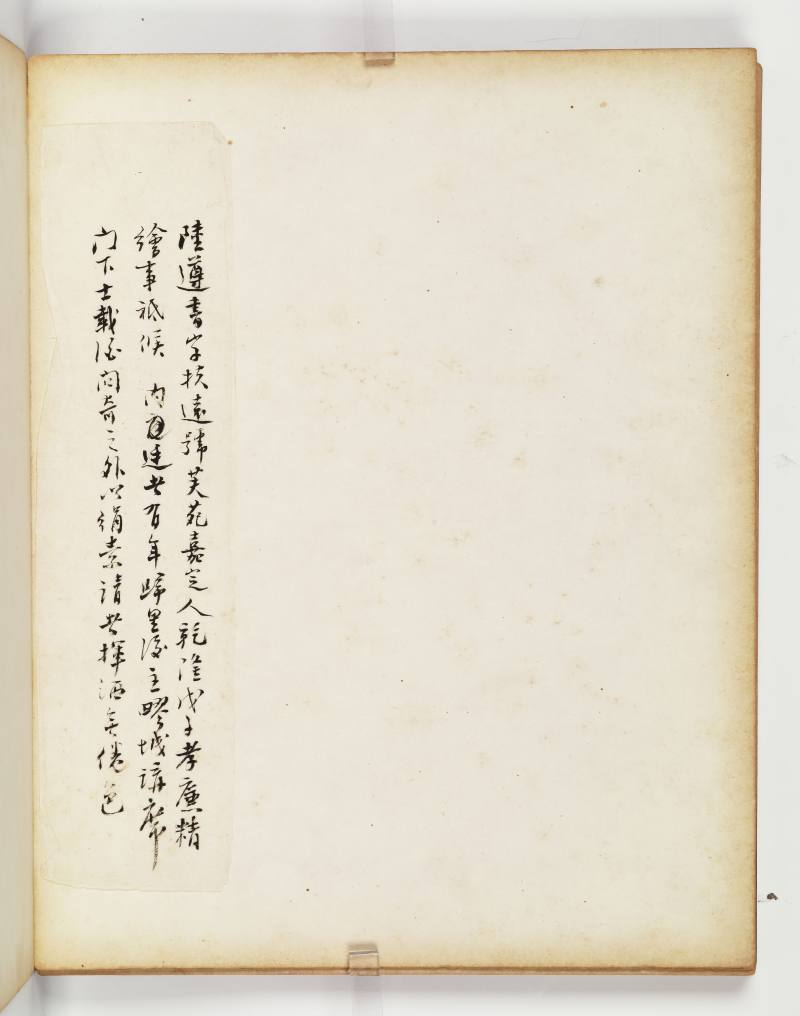 陸遵書字扶遠號芙苑嘉定人乾隆戊子孝廉精
繪事祗候 內廷者有年歸里後主疁城講席
门下士載酒問奇之外以绢素請者揮洒无倦色